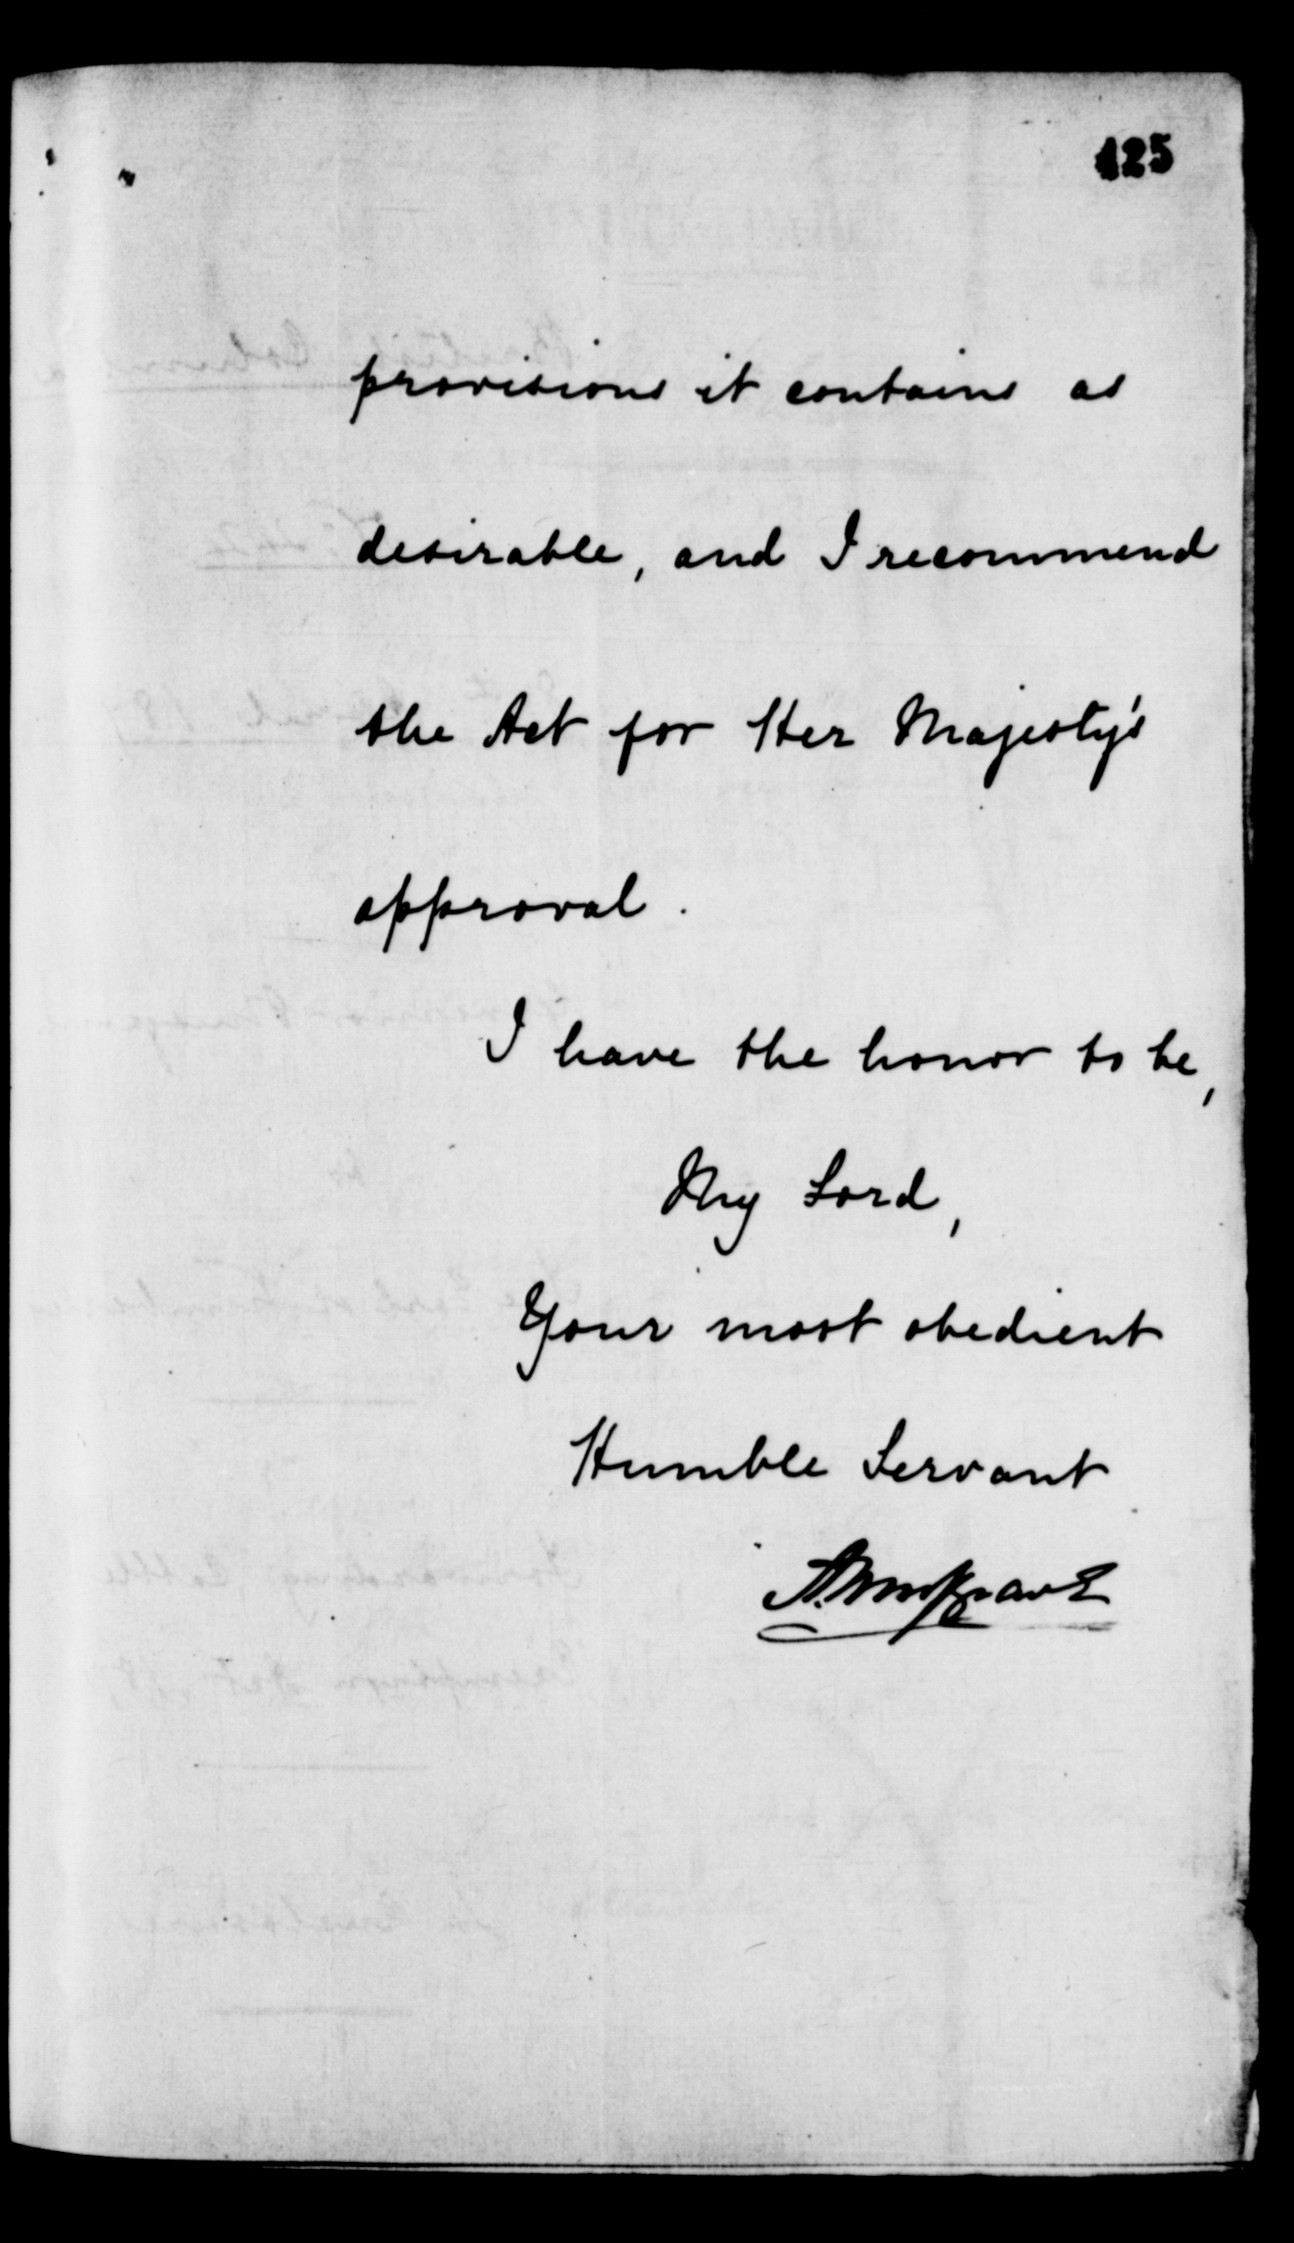 425
provisions it contains as
desirable, and I recommend
the Act for Her Majesty's
approval.
I have the honor to be,
My Lord,
Your most obedient
Humble Servant
A. Musgrave